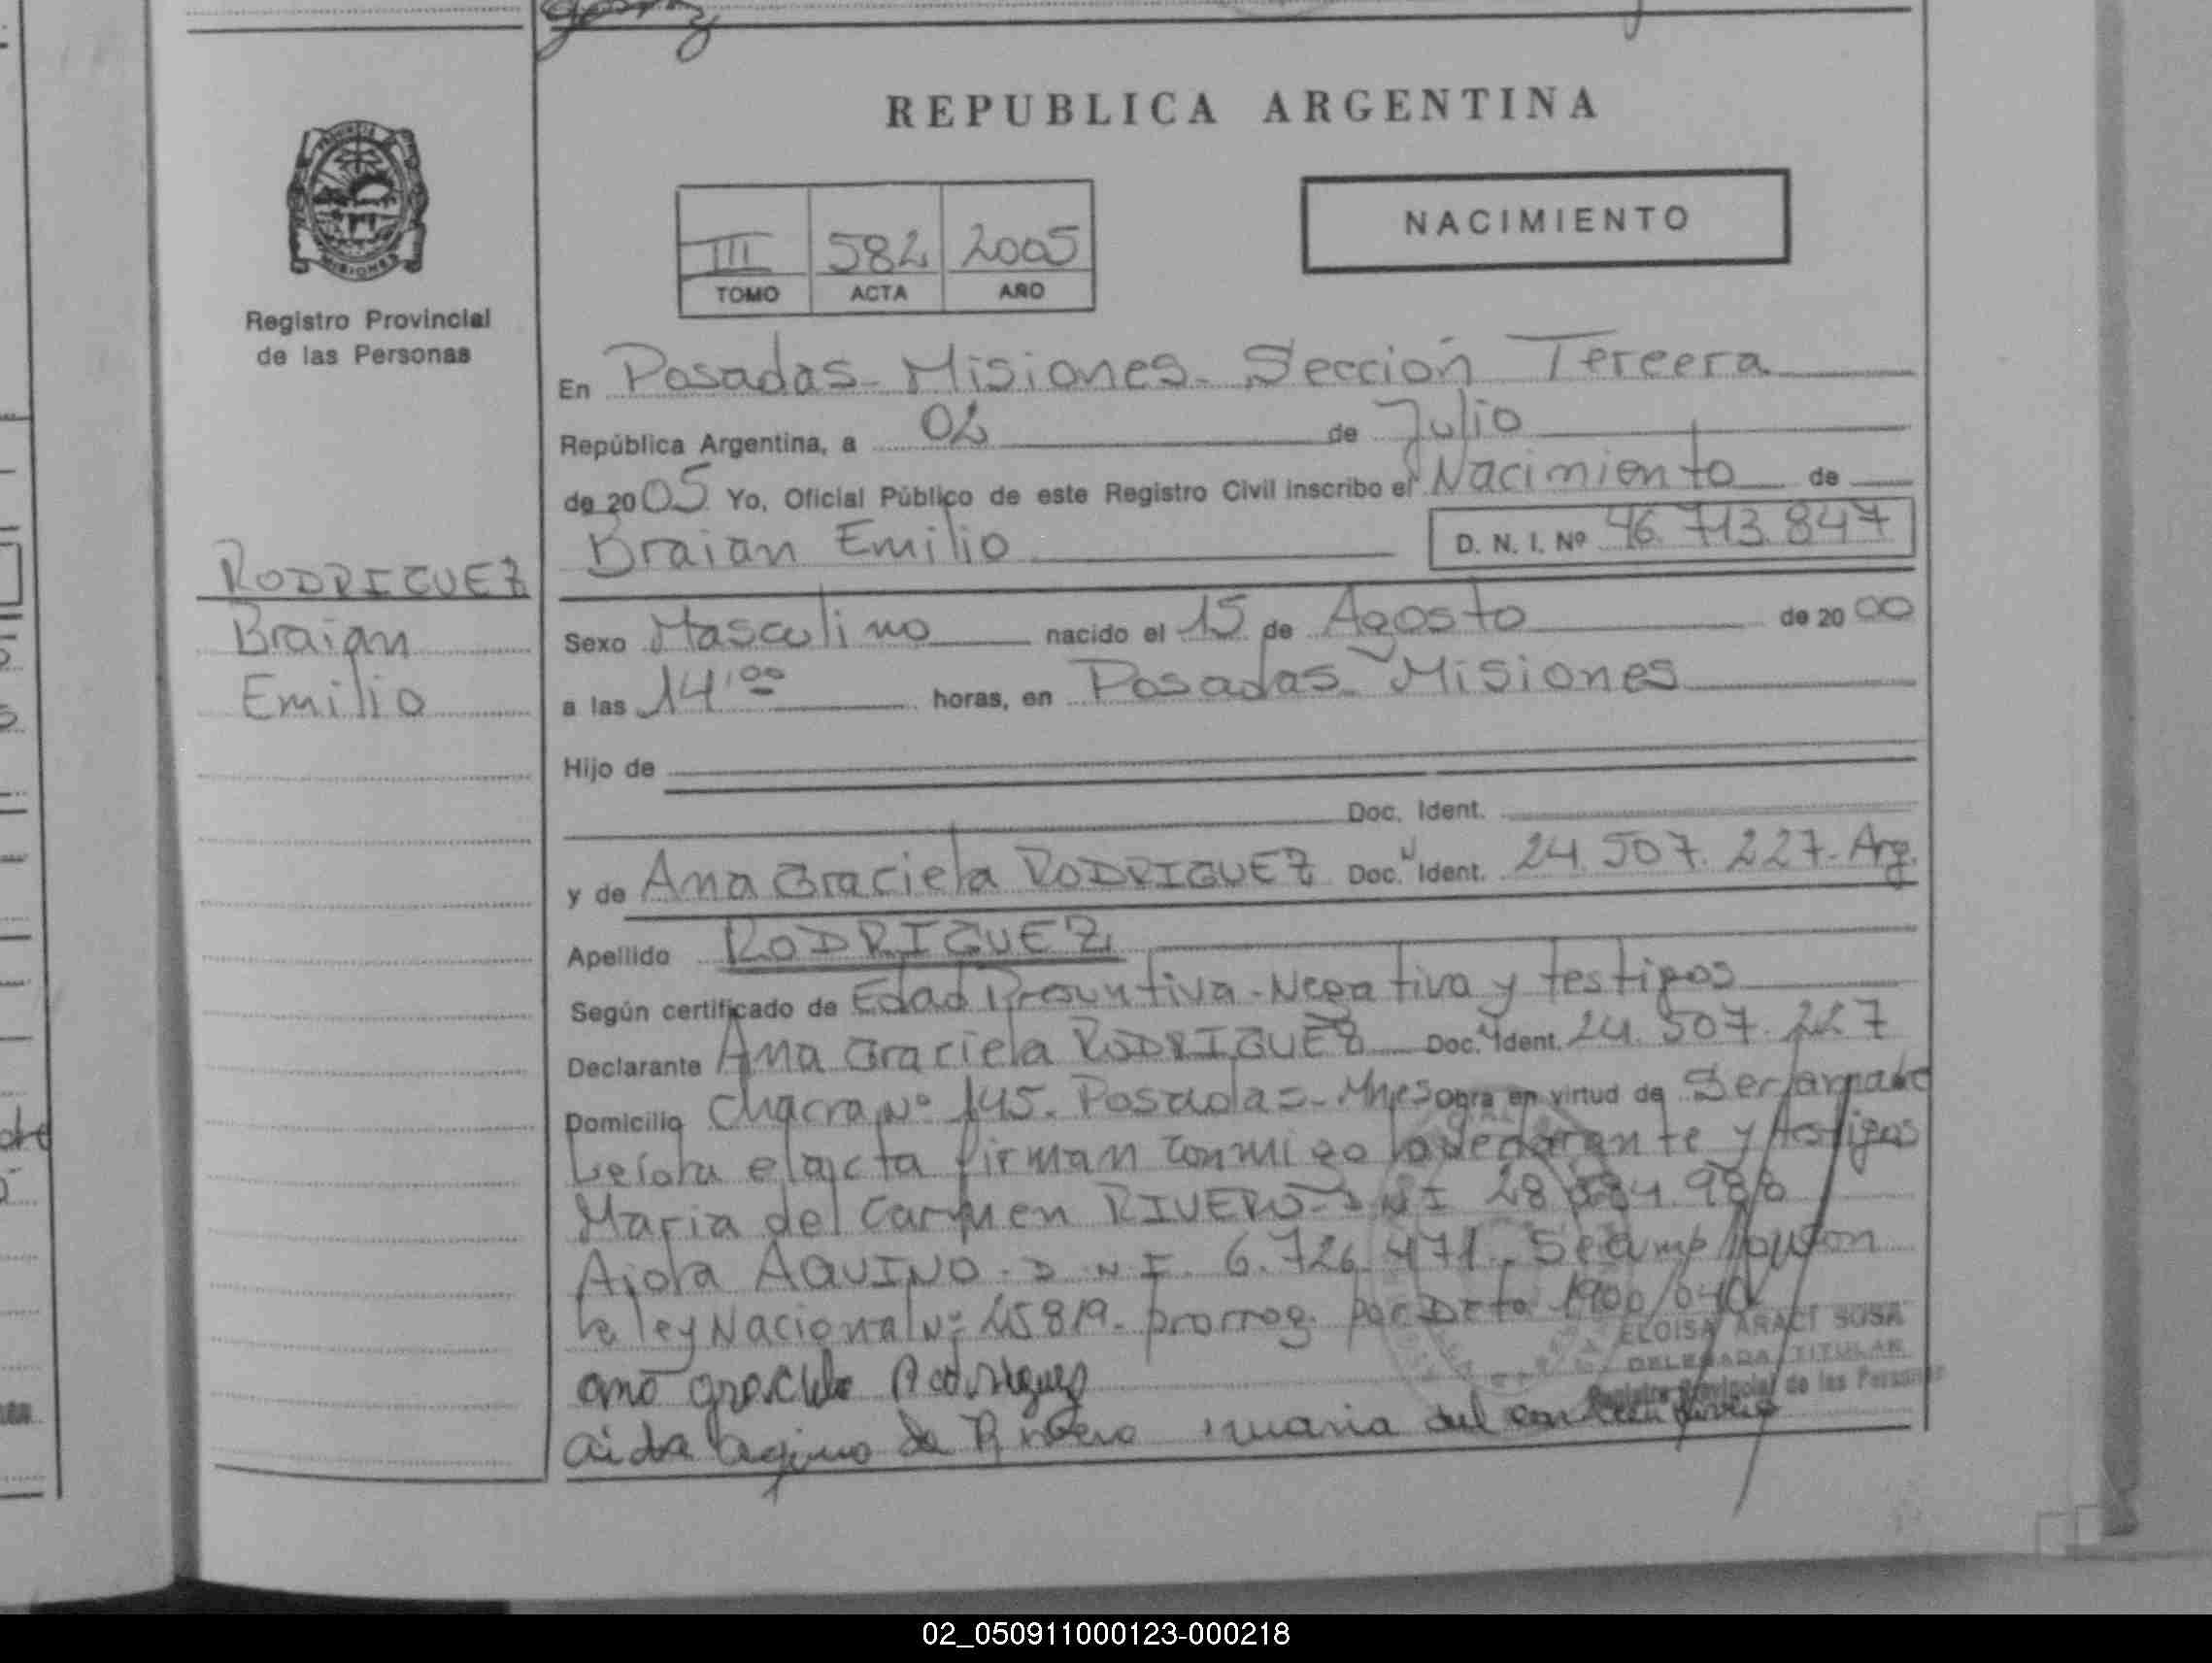 REPUBLICA ARGENTINA
NACIMIENTO
III 582 2005
TOMO ACTA AÑO
PROVINCIA
MISIONES
Registro Provincial
de las Personas
RODRIGUEZ
Braian
Emilio
En Posadas - Misiones - Sección Tercera
República Argentina, a 02 de Julio
de 2005 Yo, Oficial Público de este Registro Civil inscribo el Nacimiento de
Braian Emilio D. N. I. Nº 46.713.847
Sexo Masculino nacido el 15 de Agosto de 2000
a las 14,00 horas, en Posadas - Misiones
Hijo de
Doc. Ident.
y de Ana Graciela RODRIGUEZ Doc. Ident. 24.507.227 - Arg.
Apellido RODRIGUEZ
Según certificado de Edad Presuntiva - Negativa y testigos
Declarante Ana Graciela RODRIGUEZ Doc. Ident. 24.507.227
Domicilio Chacra Nº 145 - Posadas - Mnes obra en virtud de Ser la madre
Leída el acta firman conmigo la declarante y testigos
Maria del Carmen RIVERO - D N I 28. 988
Aida AQUINO - D.N.I. 6.726.471. Se
la ley Nacional Nº 25819 - prorrog. por Dcto 1900/04
ELOISA ARACI SOSA
DELEGADA TITULAR
Registro Provincial de las Personas
ana graciela Rodriguez
aida aquino de Rivero maria del carmen rivero
02_050911000123-000218